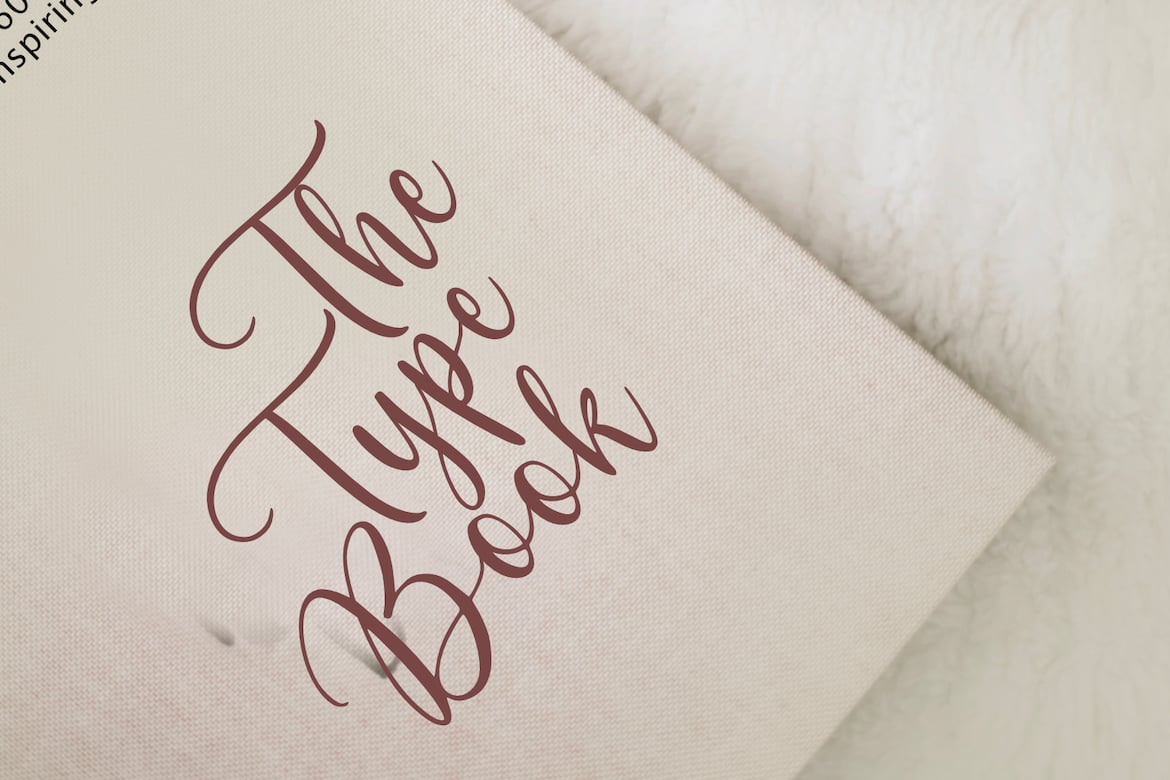 60
nspiring
The
Type
Book